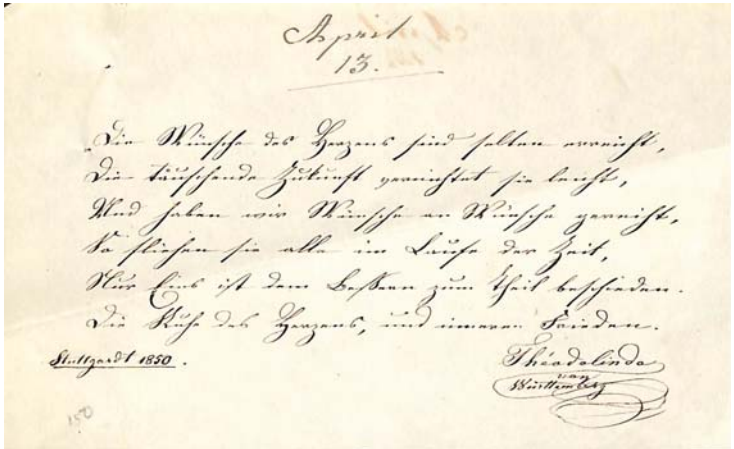 April
13.
Die Wünsche des Herzens sind selten erreicht,
Die täuschende Zukunft vernichtet sie leicht,
Und haben wir Wünsche an Wünsche gereiht,
So fliehen sie alle im Laufe der Zeit,
Nur Eins ist dem Bessern zum Theil beschieden.
Die Ruhe des Herzens, und inneren Frieden.
Stuttgardt 1850.
Théodolinde
von
Württemberg
150